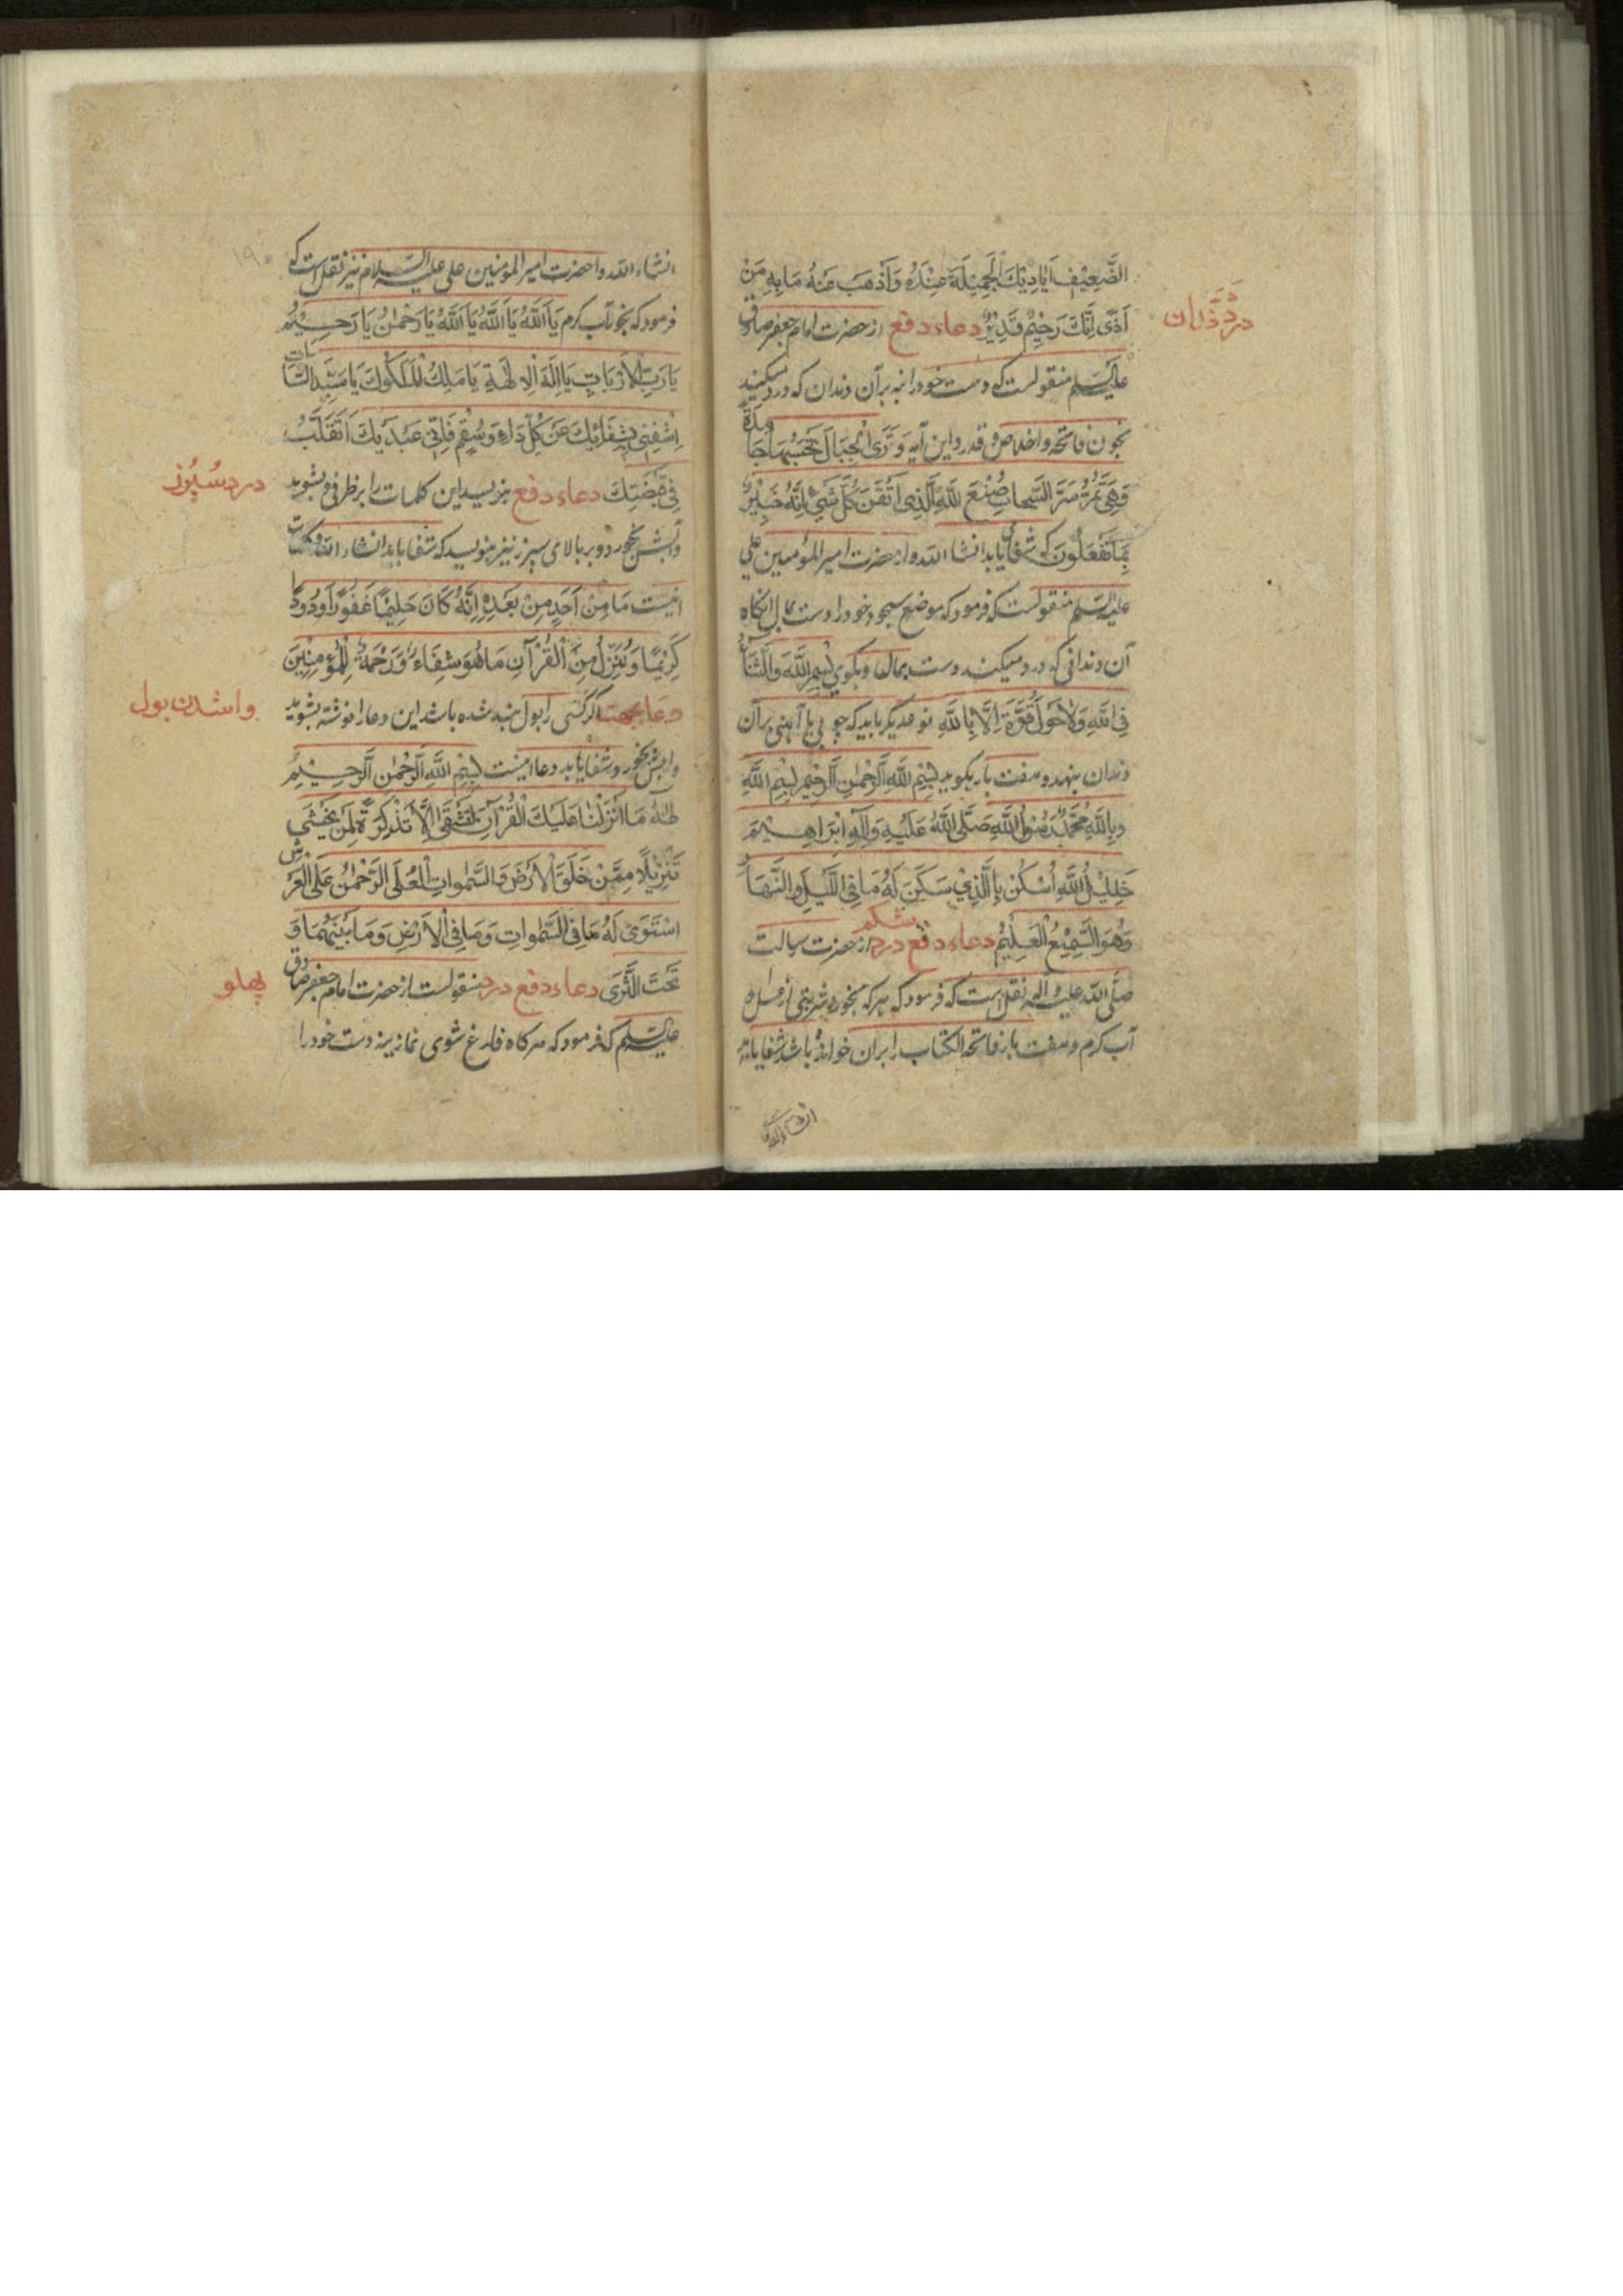 الضَّعِيْفِ اَيَادِيْكَ الْجَمِيْلَةَ عِنْدَهُ وَاَذْهِبْ عَنْهُ مَا بِهِ مِنْ
اَذًى اِنَّكَ رَحِيْمٌ قَدِيْرٌ دعاء دفع از حضرت امام جعفر صادق
درد دندان
علیه السلم منقولست که دست خود را بنه بر آن دندان که درد میکند
بخوان فاتحه و اخلاص و قدر و این آیه وَتَرَى الْجِبَالَ تَحْسَبُهَا جَامِدَةً
وَهِيَ تَمُرُّ مَرَّ السَّحَابِ صُنْعَ اللَّهِ الَّذِي اَتْقَنَ كُلَّ شَيْءٍ اِنَّهُ خَبِيْرٌ
بِمَا تَفْعَلُونَ که شفا یابد انشا الله و از حضرت امیر المؤمنین علی
علیه السلم منقولست که فرمود که موضع سجود خود را دست بمال آنکاه
آن دندانی که درد میکند دست بمال و بکوی بِسْمِ اللَّهِ وَالشَّافِي
فِي اللهِ وَلَاحَوْلَ وَلَا قُوَّةَ اِلَّا بِاللَّهِ نوعدیکر باید که چوبی یا آهنی بر آن
دندان بنهد و هفت بار بکوید بِسْمِ اللَّهِ الرَّحْمٰنِ الرَّحِيْمِ بِسْمِ اللَّهِ
وَبِاللَّهِ مُحَمَّدٌ رَسُولُ اللَّهِ صَلَّى اللَّهُ عَلَيْهِ وَآلِهِ اِبْرَاهِيْمَ
خَلِيْلُ اللَّهِ اُسْكُنْ بِالَّذِي سَكَنَ لَهُ مَا فِي اللَّيْلِ وَالنَّهَارِ
وَهُوَ السَّمِيْعُ الْعَلِيْمُ دعاء دفع درد شکم از حضرت رسالت
صلّی الله علیه و آله نقل است که فرمود که هر که بخورد شربتی از عسل و
آب کرم و هفت بار فاتحة الکتاب را بر آن خوانده باشد شفا یابد
انشاء الله
انشاء الله و از حضرت امیر المؤمنین علی علیه السلام نیز نقل است که
فرمود که بخور آب کرم یَا اَللَّهُ يَا اَللَّهُ يَا اَللَّهُ يَا رَحْمٰنُ يَا رَحِيْمُ
يَا رَبَّ الْاَرْبَابِ يَا اِلٰهَ الْاٰلِهَةِ يَا مَلِكَ الْمُلُوكِ يَا سَيِّدَ السَّادَاتِ
اِشْفِنِي بِشِفَائِكَ عَنْ كُلِّ دَاءٍ وَسُقْمٍ فَاِنِّي عَبْدُكَ اَتَقَلَّبُ
فِي قَبْضَتِكَ دعاء دفع بنویسد این کلمات را بر ظرفی و بشوید
درد سُپُرز
و آبش بخورد و بر بالای سپرز نیز بنویسد که شفا یابد انشاء الله کلمات
اینست مَا مِنْ اَحَدٍ مِنْ بَعْدِهِ اِنَّهُ كَانَ حَلِيْمًا غَفُورًا وَدُودًا
كَرِيْمًا وَنُنَزِّلُ مِنَ الْقُرْآنِ مَا هُوَ شِفَاءٌ وَرَحْمَةٌ لِلْمُؤْمِنِيْنَ
دعا بجهت اکر کسی را بول بند شده باشد این دعا را نوشته بشوید
واشدن بول
و آبش بخورد و شفا یابد دعا اینست بِسْمِ اللَّهِ الرَّحْمٰنِ الرَّحِيْمِ
طٰهٰ مَا اَنْزَلْنَا عَلَيْكَ الْقُرْآنَ لِتَشْقٰى اِلَّا تَذْكِرَةً لِمَنْ يَخْشٰى
تَنْزِيْلًا مِمَّنْ خَلَقَ الْاَرْضَ وَالسَّمٰوَاتِ الْعُلٰى الرَّحْمٰنُ عَلَى الْعَرْشِ
اسْتَوٰى لَهُ مَا فِي السَّمٰوَاتِ وَمَا فِي الْاَرْضِ وَمَا بَيْنَهُمَا وَ
تَحْتَ الثَّرٰى دعاء دفع درد منقولست از حضرت امام جعفر صادق
پهلو
علیه السلم که فرمود که هر کاه فارغ شوی نماز بنه دست خود را